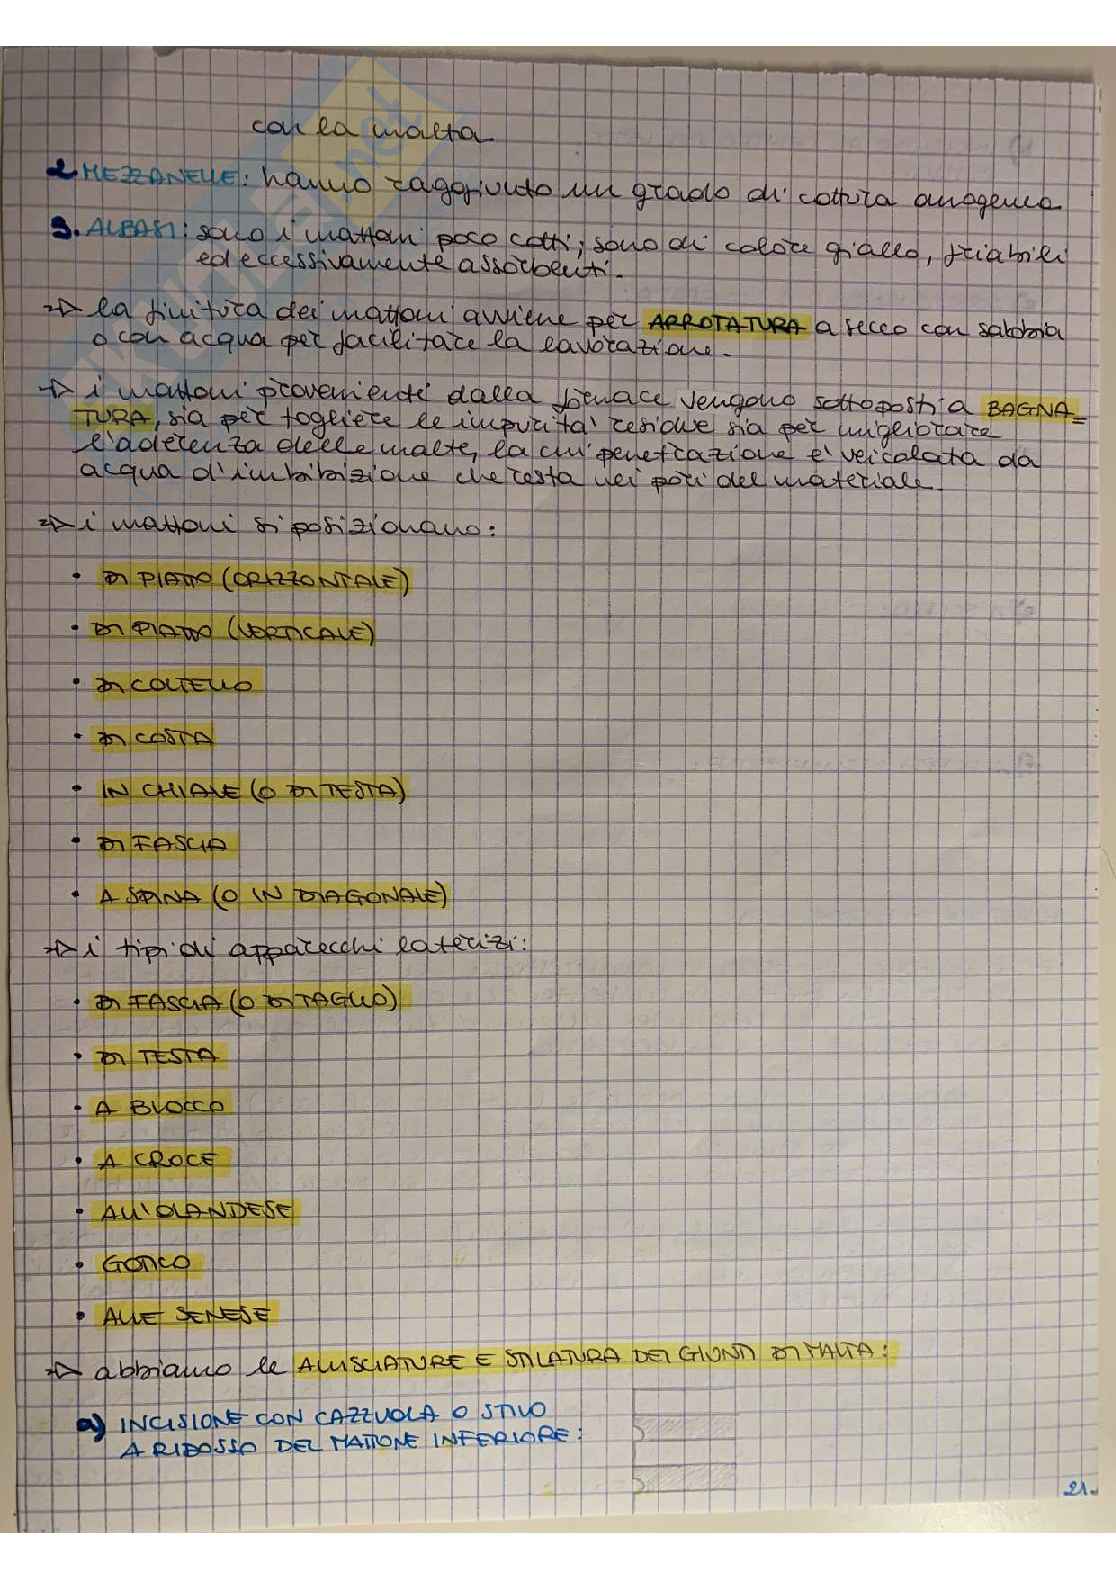 con la malta
2. MEZZANELLE: hanno raggiunto un grado di cottura omogenea
3. ALBASI: sono i mattoni poco cotti; sono di colore giallo, friabili
ed eccessivamente assorbenti.
⇒ la finitura dei mattoni avviene per ARROTATURA a secco con sabbia
o con acqua per facilitare la lavorazione.
⇒ i mattoni provenienti dalla fornace vengono sottoposti a BAGNA=
TURA, sia per togliere le impurità residue sia per migliorare
l'aderenza delle malte, la cui penetrazione è veicolata da
acqua d'imbibizione che resta nei pori del materiale.
⇒ i mattoni si posizionano:
• DI PIATTO (ORIZZONTALE)
• DI PIATTO (VERTICALE)
• DI COLTELLO
• DI COSTA
• IN CHIAVE (O DI TESTA)
• DI FASCIA
• A SPINA (O IN DIAGONALE)
⇒ i tipi di apparecchi laterizi:
• DI FASCIA (O DI TAGLIO)
• DI TESTA
• A BLOCCO
• A CROCE
• ALL'OLANDESE
• GOTICO
• ALLE SENESE
⇒ abbiamo le ALLISCIATURE E STILATURA DEI GIUNTI DI MALTA:
a) INCISIONE CON CAZZUOLA O STILO
A RIDOSSO DEL MATTONE INFERIORE:
21.